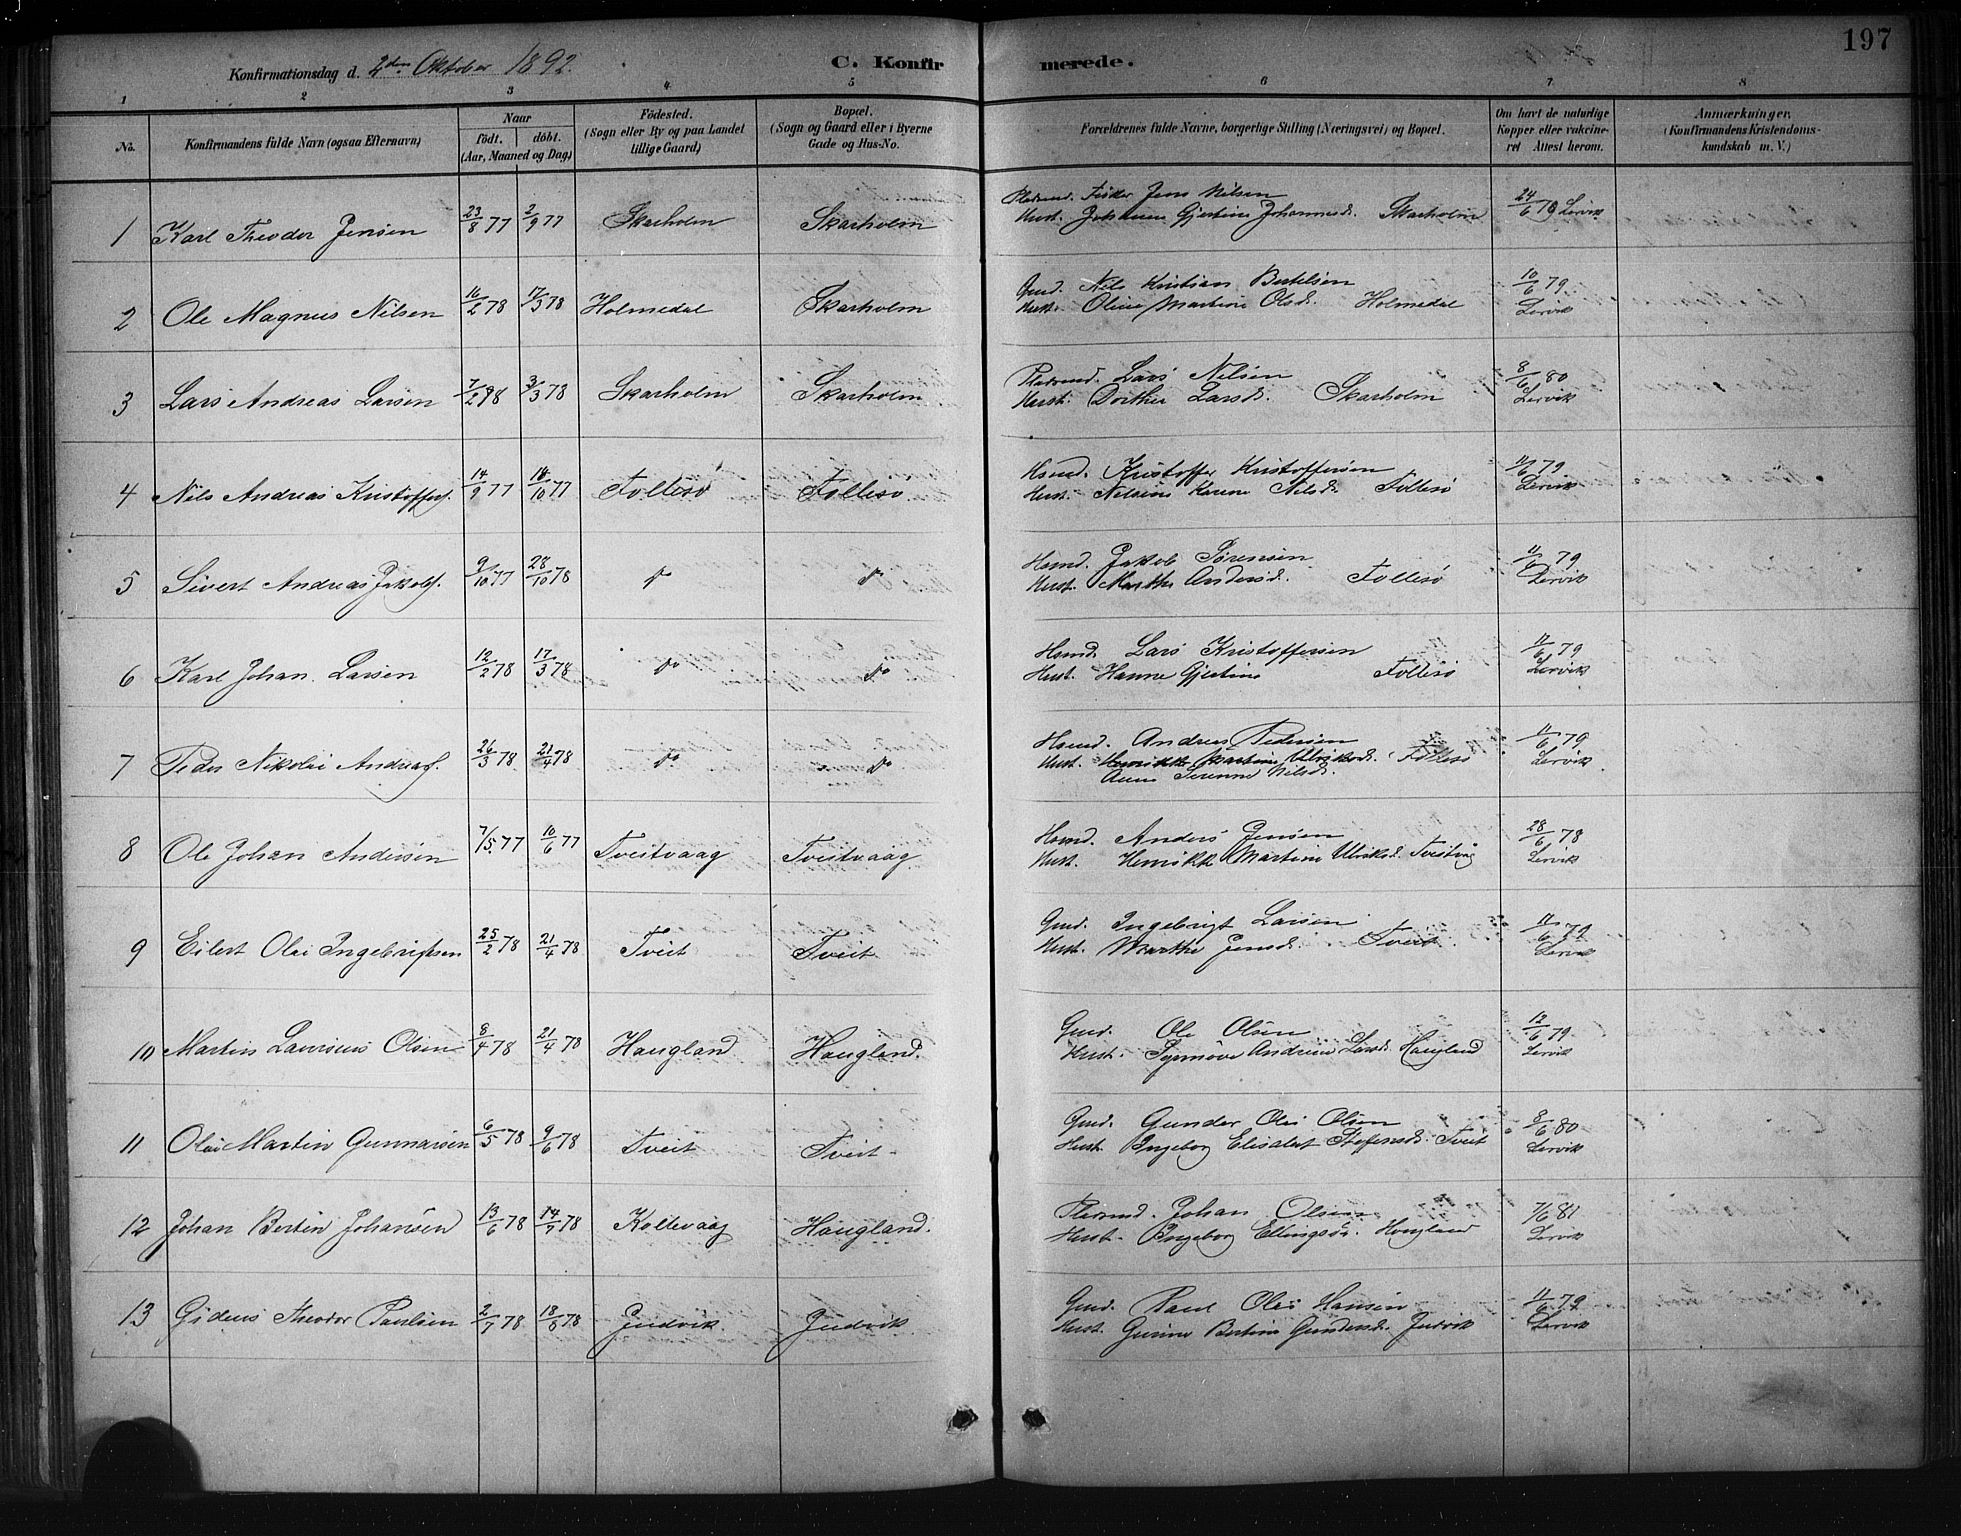 197
Konfirmationsdag d. 2den Oktober 1892.
C. Konfirmerede.
1 2 3 4 5 6 7 8
No.
Konfirmandens fulde Navn (ogsaa Efternavn)
Naar
födt. döbt.
(Aar, Maaned og Dag)
Födested.
(Sogn eller By og paa Landet
tillige Gaard)
Bopæl.
(Sogn og Gaard eller i Byerne
Gade og Hus-No.
Forældrenes fulde Navne, borgerlige Stilling (Næringsvei) og Bopæl.
Om havt de naturlige
Kopper eller vakcine-
ret Attest herom.
Anmærkninger,
(Konfirmandens Kristendoms-
kundskab m. V.)
1 Karl Theodor Jensen 23/8 77 2/9 77 Skarholm Skarholm
Fisker Jens Nilsen
Hust. Johanne Gjertine Johannesd. Skarholm
24/6 79 Lervik
2 Ole Magnus Nilsen 16/2 78 17/3 78 Holmedal Skarholm
Gmd. Nils Kristian Bertelsen
Hust. Oline Martine Olsd. Holmedal
10/6 79
Lervik
3 Lars Andreas Larsen 7/2 78 3/3 78 Skarholm Skarholm
Pladsmd. Lars Nilsen
Hust. Dorthea Larsd. Skarholm
8/6 80
Lervik
4 Nils Andreas Kristoffers. 14/9 77 /10 77 Follesø Follesø
Hsmd. Kristoffer Kristoffersen
Hust. Nilsine Karine Nilsd. Follesø
11/6 79
Lervik
5 Sivert Andreas Jakobs. 9/10 77 28/10 78 do do
Hsmd. Jakob Sørensen
Hust. Marthe Andersd. Follesø
11/6 79
Lervik
6 Karl Johan Larsen 12/2 78 17/3 78 do do
Hsmd. Lars Kristoffersen
Hust. Hanne Gjertine Follesø
11/6 79
Lervik
7 Peder Nikolai Andreas. 26/3 78 21/4 78 do do
Hsmd. Andreas Pedersen
Hust. Henrikke Martine Ulriksd. Follesø
Anne Serenne Nilsd.
11/6 79
Lervik
8 Ole Johan Andersen 7/5 77 10/6 77 Tveitvaag Tveitvaag
Hsmd. Anders Jensen
Hust. Henrikke Martine Ulriksd. Tveitvåg
28/6 78
Lervik
9 Eilert Olai Ingebrigtsen 25/2 78 21/4 78 Tveit Tveit
Gmd. Ingebrigt Larsen
Hust. Marthe Jensd. Tveit
11/6 79
Lervik
10 Martin Laurinus Olsen 8/4 78 21/4 78 Haugland Haugland.
Gmd. Ole Olsen
Hust. Synnøve Andrine Larsd. Haugland
12/6 79
Lervik
11 Olai Martin Gunnarsen 6/5 78 9/6 78 Tveit Tveit
Gmd. Gunder Olai Olsen
Hust. Ingeborg Elisabet Steffensd. Tveit
8/6 80
Lervik
12 Johan Bertin Johansen 13/6 78 14/7 78 Kollevaag Haugland.
Johan Olsen
Hust. Ingeborg Ellingsd. Haugland
7/6 81
Lervik
13 Gideus Theodor Paulsen 2/7 78 18/8 78 Judvik Judvik
Gmd. Paul Olai Hansen
Hust. Gurine Bertine Gundersd. Judvik
11/6 79
Lervik